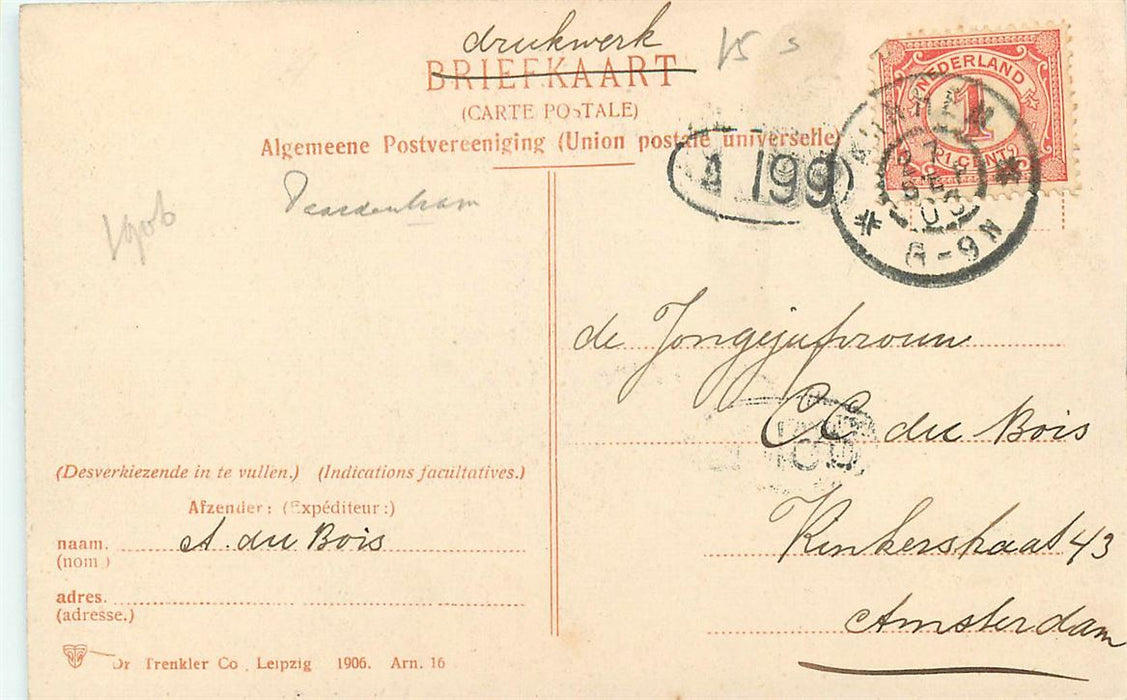 drukwerk
BRIEFKAART
15 s
(CARTE POSTALE)
Algemeene Postvereeniging (Union postale universelle)
NEDERLAND
1
1 CENT
ARNHEM
8-9N
A 199
1906
de Jongejufvrouw
CC du Bois
Kinkerstraat 43
Amsterdam
(Desverkiezende in te vullen.) (Indications facultatives.)
Afzender: (Expéditeur:)
naam. A. du Bois
(nom)
adres.
(adresse.)
Dr Trenkler Co, Leipzig 1906. Arn. 16